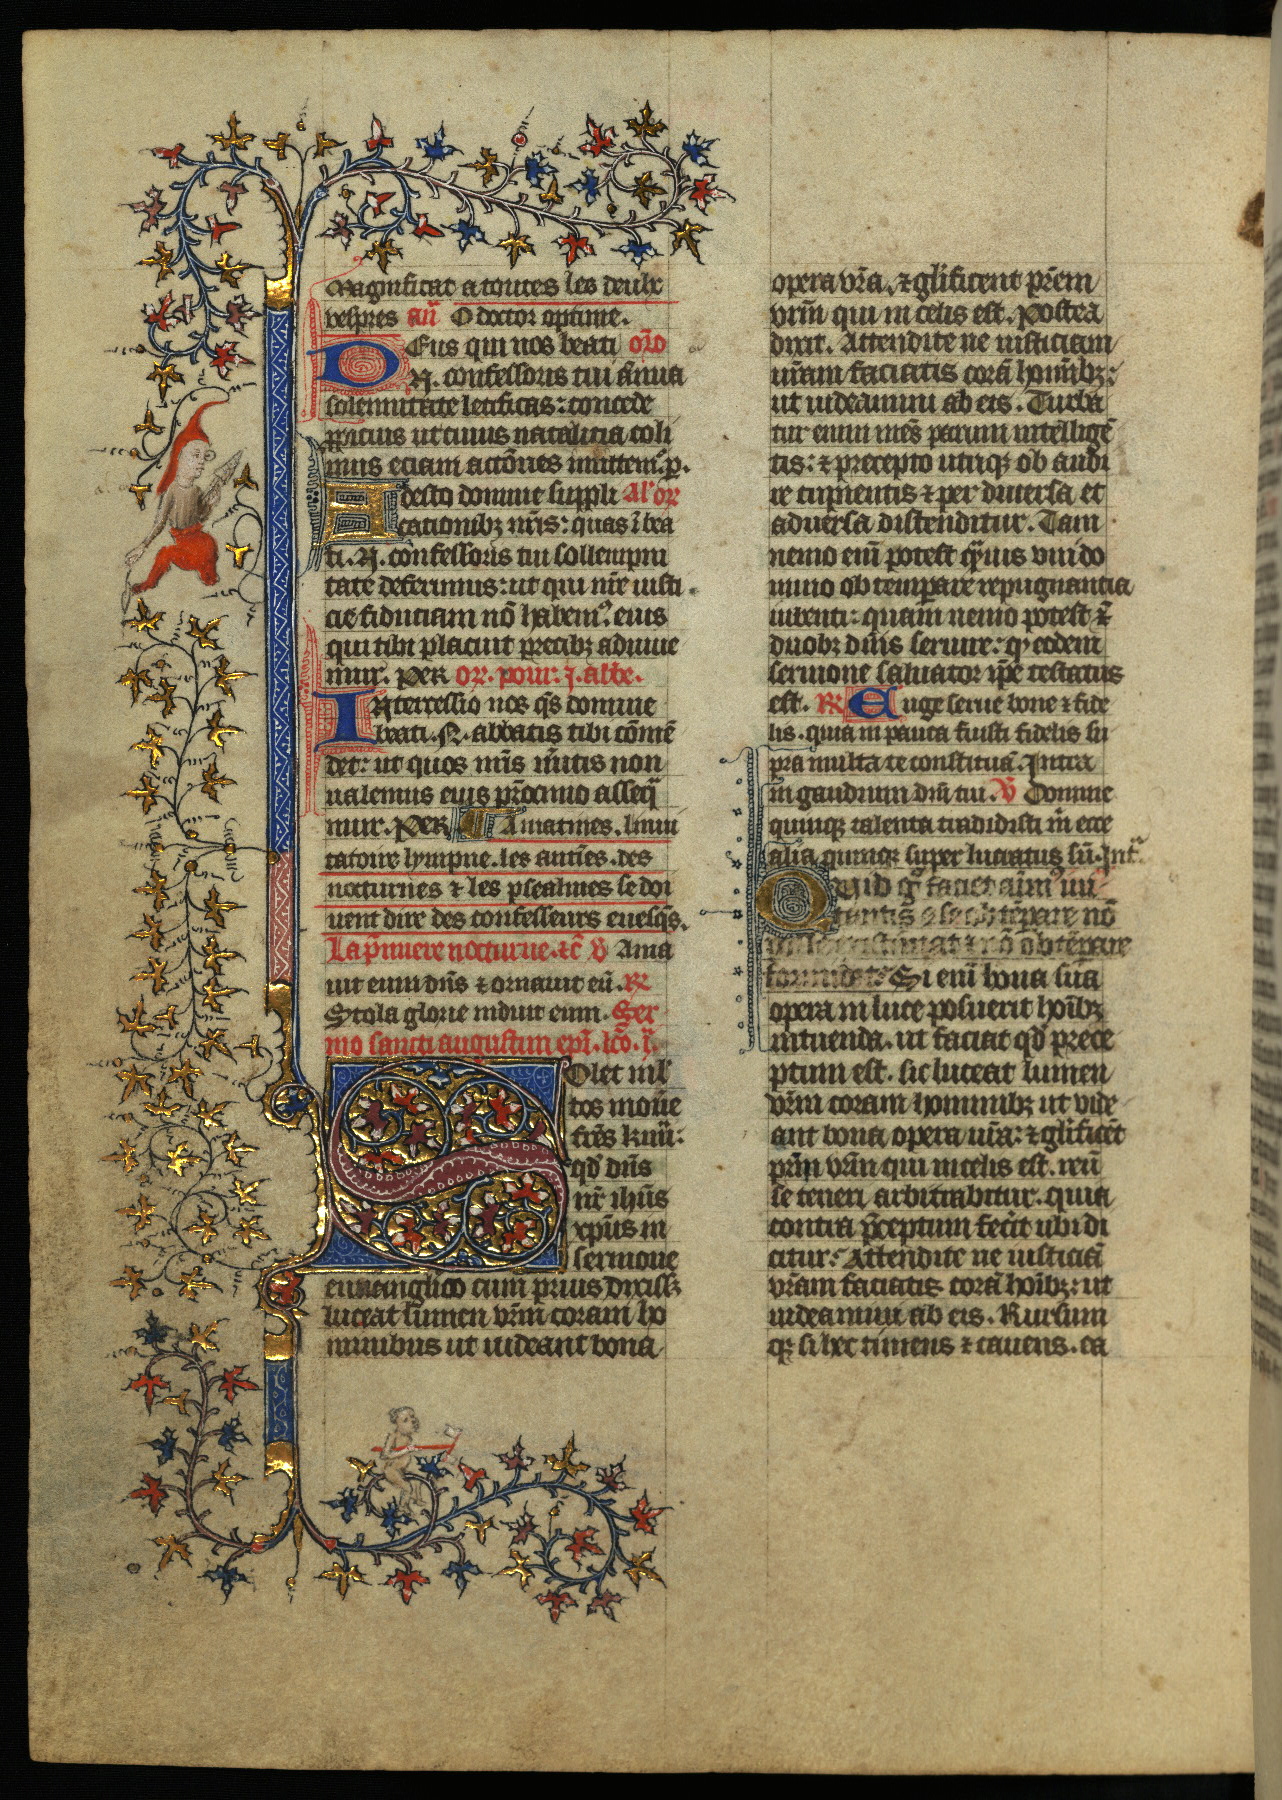 Magnificat a toutes les deulx
vespres añ O doctor optime.
DEus qui nos beati oro
.N. confessoris tui ānua
solennitate letificas: concede
ppicius ut cuius natalicia coli
mus eciam actōnes imitem᷒. p.
Adesto domine suppli Al' or
cationibꝫ nr̄is: quas ī bea
ti .N. confessoris tui sollempni
tate deferimus: ut qui nr̄e iusti
cie fiduciam nō habem᷒, eius
qui tibi placuit precibꝫ adiuue
mur. Per or. pour .j. abbe.
INtercessio nos q̄s domine
beati .N. abbatis tibi cōmē
det: ut quos nr̄is m̄itis non
ualemus eius pr̄ocinio asseq̄
mur. Per A matines. linui
tatoire lympne. les antīes. des
nocturnes ⁊ les psealmes se doi
uent dire des confesseurs euesq̄s.
La p̄miere nocturne. ⁊c̄ ℣ Ama
uit eum dn̄s ⁊ ornauit eū. ℟
Stola glorie induit eum. Ser
mo sancti augustini ep̄i. lc̄o .j.
SOlet ml'
tos mouē
frēs kmi:
qd' dn̄s
nr̄ ihūs
xp̄us in
sermone
euuanglico cum prius dixissꝫ
luceat lumen vr̄m coram ho
minibus ut uideant bona
opera vr̄a, ⁊ gl'ificent pr̄em
vr̄m qui in celis est. Postea
dixit. Attendite ne iusticiam
ur̄am faciatis corā homībꝫ:
ut uideamini ab eis. Turba
tur enim mēs parum intelligē
tis: ⁊ precepto utriqꝫ ob audi
re cupientis ⁊ per diuersa et
aduersa distenditur. Tam
nemo enī potest q̄uis vni do
mino obtemperare repugnantia
iubenti: quam nemo potest ī
duobꝫ dn̄is seruire: qꝫ eodem
sermone saluator ip̄e testatus
est. ℟ Euge serue bone ⁊ fide
lis. quia in pauca fuisti fidelis su
pra multa te constituā. Intra
in gaudium dn̄i tui. ℣ Domine
quinqꝫ talenta tradidisti m̄ ecce
alia quinqꝫ super lucratus sū. Int̄.
QUid g̊ faciet aim᷒ in
obtēpare nō
⁊ nō obtēpare
formidat? Si enī bona sua
opera in luce posuerit hoībꝫ
intuenda. ut faciat qd' prece
ptum est. sic luceat lumen
vr̄m coram hominibꝫ ut vide
ant bona opera ur̄a: ⁊ gl'ificēt
pr̄m vr̄m qui in celis est. reū
se teneri arbitrabitur. quia
contra p̄ceptum fecit ubi di
citur: Attendite ne iusticiā
vr̄am faciatis corā hoībꝫ: ut
uideamini ab eis. Rursum
qꝫ si hec timens ⁊ cauens. ea